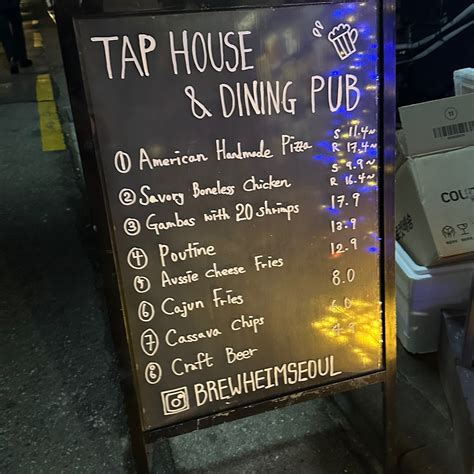 TAP HOUSE
& DINING PUB
① American Handmade Pizza S 11.4~
R 17.4~
② Savory Boneless Chicken S 9.9~
R 16.4~
③ Gambas with 20 shrimps 17.9
④ Poutine 13.9
⑤ Aussie cheese Fries 12.9
⑥ Cajun Fries 8.0
⑦ Cassava chips 6.0
⑧ Craft Beer 4.9
BREWHEIMSEOUL
COL